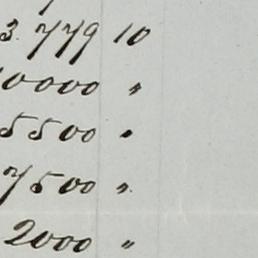 3.779 10
0000 "
5500 "
7500 "
2000 "